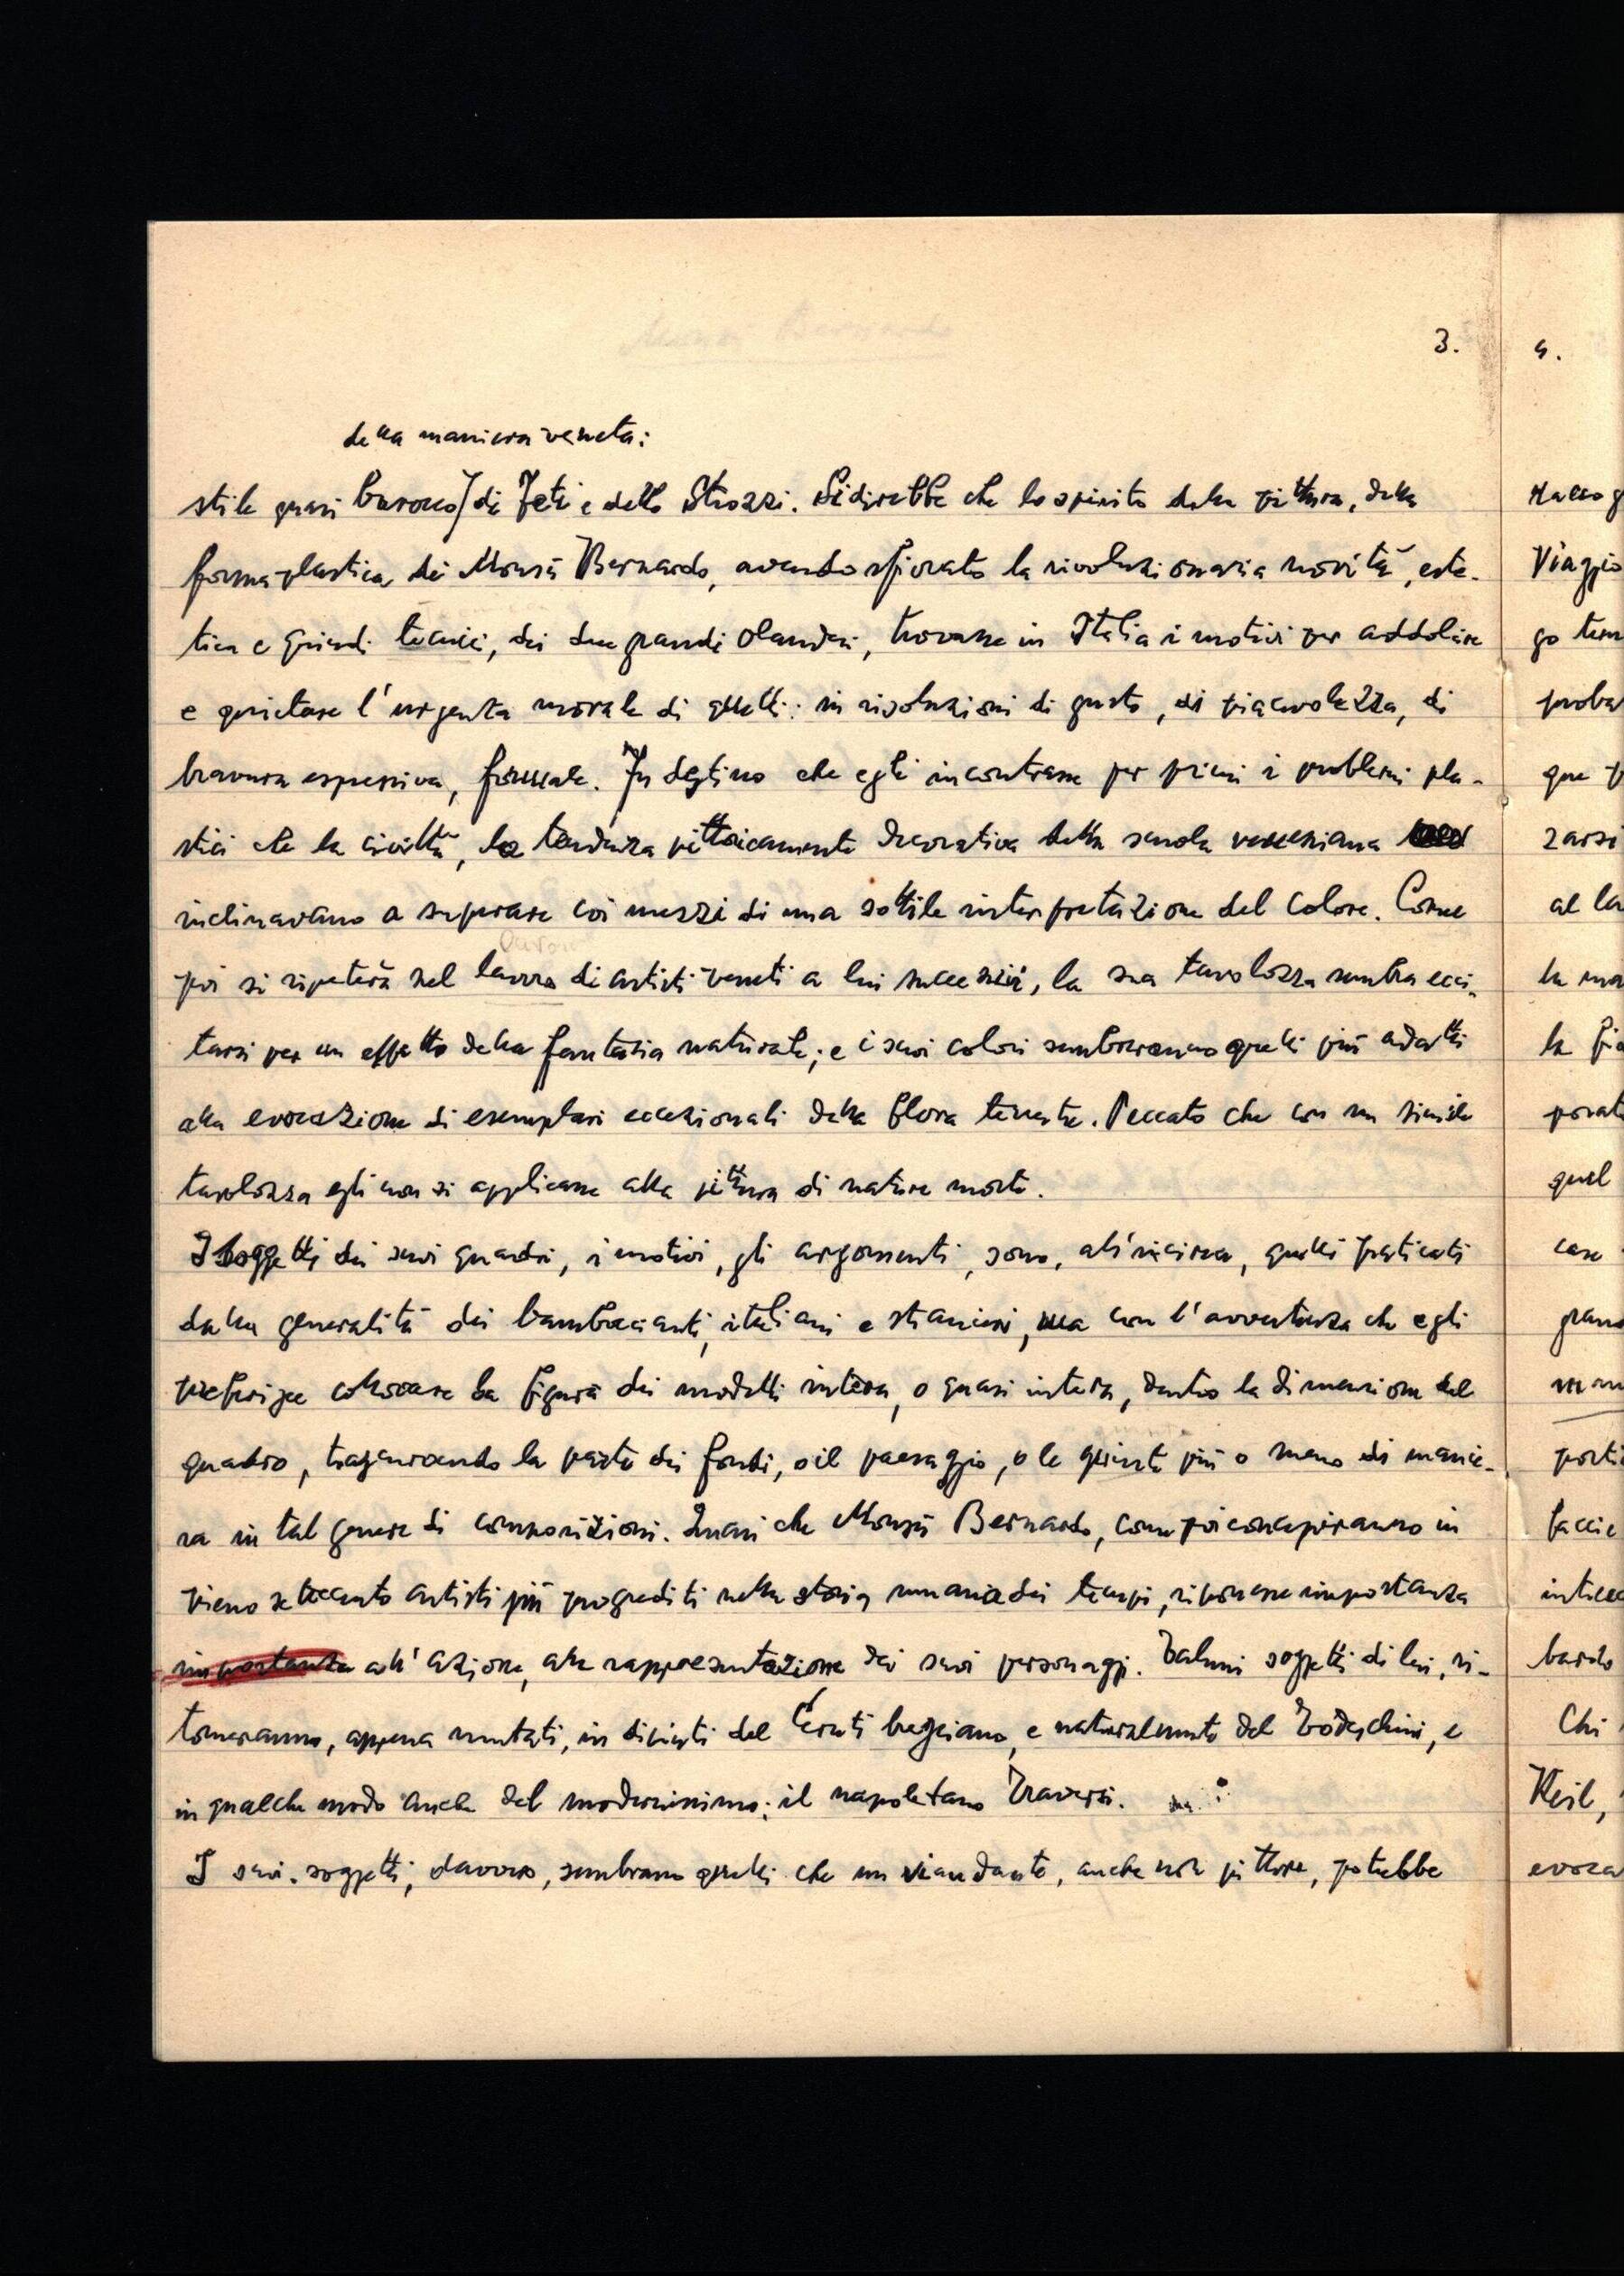 3.
della maniera veneta:
stile quasi barocco di Feti e dello Strozzi. Si direbbe che lo spirito della pittura, della
forma plastica di Monsù Bernardo, avendo sfiorato la rivoluzionaria novità, este-
tica e quindi tecnici, dei due grandi Olandesi, trovasse in Italia i motivi per addolcire
e quietare l'urgenza morale di quelli: in risoluzioni di gusto, di piacevolezza, di
bravura espressiva, formale. Fu destino che egli incontrasse per primi i problemi pla-
stici che la civiltà, la tendenza pittoricamente decorativa della scuola veneziana
inclinavano a superare coi mezzi di una sottile interpretazione del colore. Come
poi si ripeterà nel lavoro di artisti veneti a lui successivi, la sua tavolozza sembra ecci-
tarsi per un effetto della fantasia naturale; e i suoi colori sembreranno quelli più adatti
alla evocazione di esemplari eccezionali della flora terrestre. Peccato che con una simile
tavolozza egli non si applicasse alla pittura di nature morte.
I soggetti dei suoi quadri, i motivi, gli argomenti, sono, all'incirca, quelli praticati
dalla generalità dei bamboccianti, italiani e stranieri, ma con l'avvertenza che egli
preferisce collocare la figura dei modelli intera, o quasi intera, dentro la dimensione del
quadro, trascurando la parte dei fondi, o il paesaggio, o le quinte più o meno di manie-
ra in tal genere di composizioni. Quasi che Monsù Bernardo, come poi concepiranno in
pieno settecento artisti più progrediti nella storia umana dei tempi, riponesse importanza
importanza all'azione, alla rappresentazione dei suoi personaggi. Taluni soggetti di lui, ri-
torneranno, appena mutati, in dipinti del Ceruti bresciano, e naturalmente del Todeschini, e
in qualche modo anche del modernissimo: il napoletano Traversi.
I suoi soggetti, davvero, sembrano quelli che un viandante, anche non pittore, potrebbe
4.
Viaggio
go tem
proba
que
zarsi
al la
la
porat
quel
case
grand
porti
faccie
bardo
Chi
Keil,
evoca